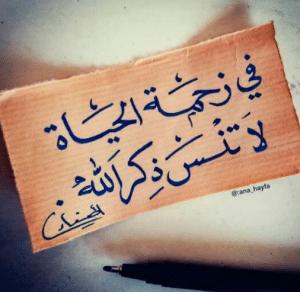 في زحمة الحياة
لا تنسَ ذكر الله
@:ana_hayfa